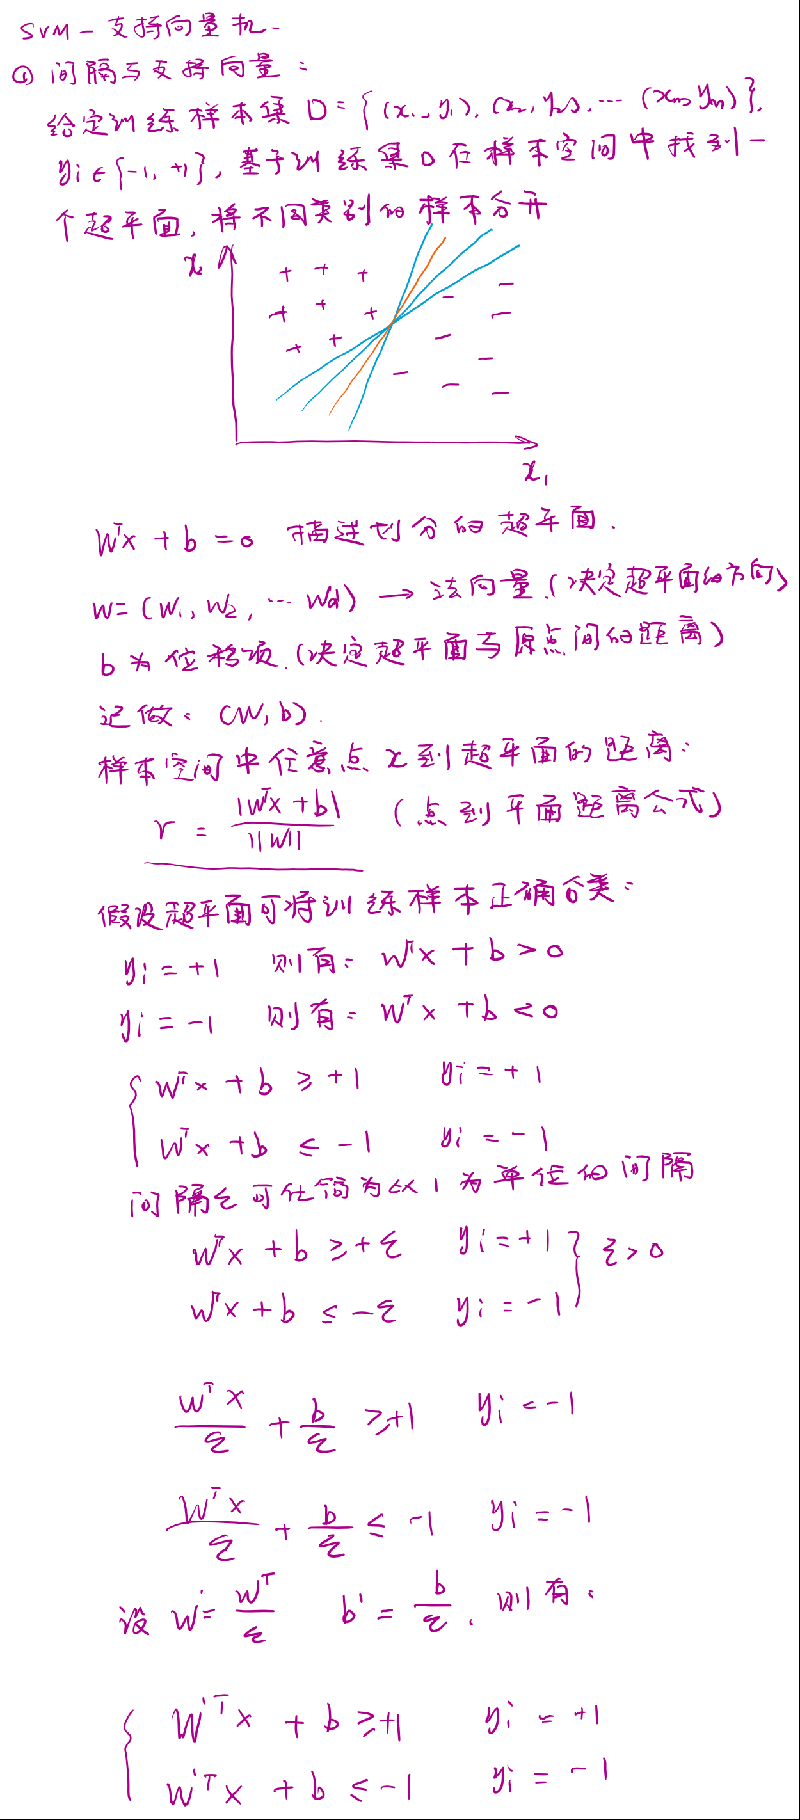 SVM-支持向量机-
① 间隔与支持向量:
给定训练样本集 D={(x₁,y₁),(x₂,y₂),…(xₘ,yₘ)},
yi∈{-1,+1},基于训练集D在样本空间中找到一
个超平面,将不同类别的样本分开
x
+ + + + + + + + - - - - - - - - -
x₁
Wᵀx + b = 0 描述划分的超平面.
W=(W₁,W₂,…Wd) → 法向量.(决定超平面的方向)
b为位移项.(决定超平面与原点间的距离)
记做:(W,b).
样本空间中任意点x到超平面的距离:
r = |Wᵀx+b| / ||W|| (点到平面距离公式)
假设超平面可将训练样本正确分类:
yi=+1 则有: Wᵀx+b>0
yi=-1 则有: Wᵀx+b<0
{ Wᵀx+b ≥ +1 yi=+1
Wᵀx+b ≤ -1 yi=-1
间隔ξ可化简为以1为单位的间隔
Wᵀx+b ≥ +ξ yi=+1 } ξ>0
Wᵀx+b ≤ -ξ yi=-1
Wᵀx/ξ + b/ξ ≥ +1 yi=-1
Wᵀx/ξ + b/ξ ≤ -1 yi=-1
设 W'=Wᵀ/ξ b'=b/ξ.则有:
{ W'ᵀx + b ≥ +1 yi=+1
W'ᵀx + b ≤ -1 yi=-1